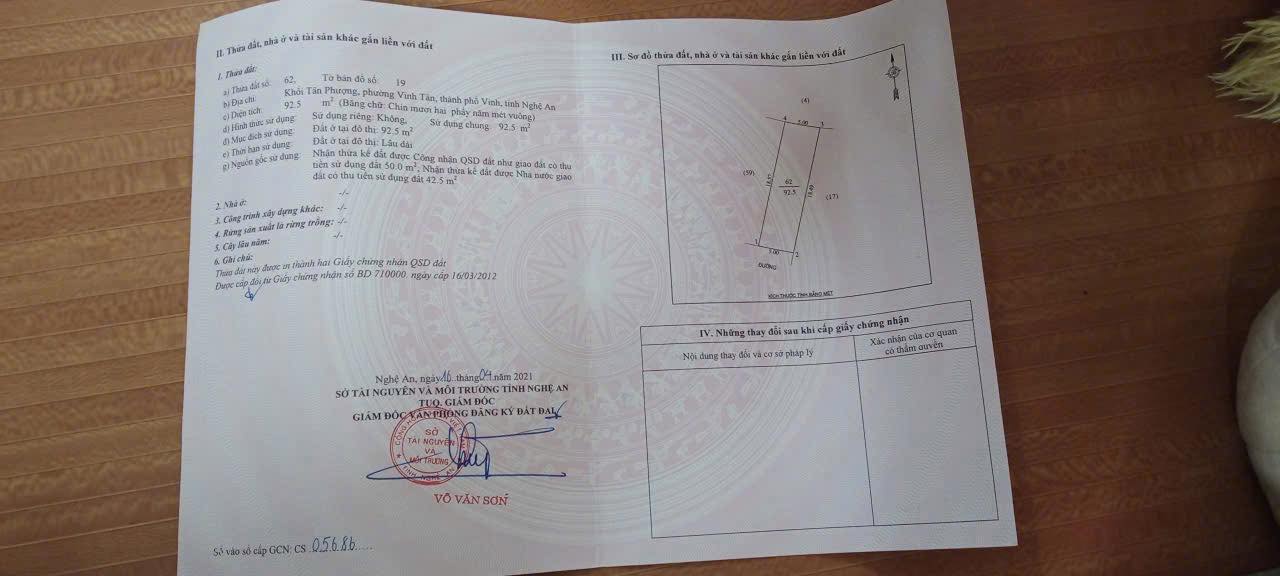 II. Thửa đất, nhà ở và tài sản khác gắn liền với đất
1. Thửa đất:
a) Thửa đất số: 62, Tờ bản đồ số: 19
b) Địa chỉ: Khối Tân Phượng, phường Vinh Tân, thành phố Vinh, tỉnh Nghệ An
c) Diện tích: 92.5 m² (Bằng chữ: Chín mươi hai phẩy năm mét vuông)
d) Hình thức sử dụng: Sử dụng riêng: Không, Sử dụng chung: 92.5 m²
đ) Mục đích sử dụng: Đất ở tại đô thị: 92.5 m²
e) Thời hạn sử dụng: Đất ở tại đô thị: Lâu dài
g) Nguồn gốc sử dụng: Nhận thừa kế đất được Công nhận QSD đất như giao đất có thu
tiền sử dụng đất 50.0 m², Nhận thừa kế đất được Nhà nước giao
đất có thu tiền sử dụng đất 42.5 m²
2. Nhà ở: -/-
3. Công trình xây dựng khác: -/-
4. Rừng sản xuất là rừng trồng: -/-
5. Cây lâu năm: -/-
6. Ghi chú:
Thửa đất này được in thành hai Giấy chứng nhận QSD đất
Được cấp đổi từ Giấy chứng nhận số BD 710000. ngày cấp 16/03/2012
Nghệ An, ngày 16 tháng 04 năm 2021
SỞ TÀI NGUYÊN VÀ MÔI TRƯỜNG TỈNH NGHỆ AN
TUQ. GIÁM ĐỐC
GIÁM ĐỐC VĂN PHÒNG ĐĂNG KÝ ĐẤT ĐAI
SỞ
TÀI NGUYÊN
VÀ
MÔI TRƯỜNG
TỈNH NGHỆ AN
VÕ VĂN SƠN
Số vào sổ cấp GCN: CS 05686
III. Sơ đồ thửa đất, nhà ở và tài sản khác gắn liền với đất
(4)
4 5.00 3
(59)
62
92.5
18.49
(17)
1 5.00 2
ĐƯỜNG
KÍCH THƯỚC TÍNH BẰNG MÉT
IV. Những thay đổi sau khi cấp giấy chứng nhận
Nội dung thay đổi và cơ sở pháp lý
Xác nhận của cơ quan
có thẩm quyền